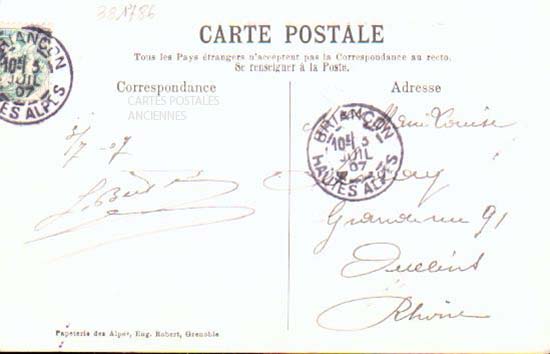 381786
CARTE POSTALE
Tous les Pays étrangers n'acceptent pas la Correspondance au recto.
Se renseigner à la Poste.
Correspondance
Adresse
CARTES POSTALES
ANCIENNES
BRIANÇON
10E 3
JUIL
07
HAUTES ALPES
BRIANÇON
10E 3
JUIL
07
HAUTES ALPES
3/7-07
Louise
Grande rue 91
Oullins
Rhône
Papeterie des Alpes, Eug. Robert, Grenoble